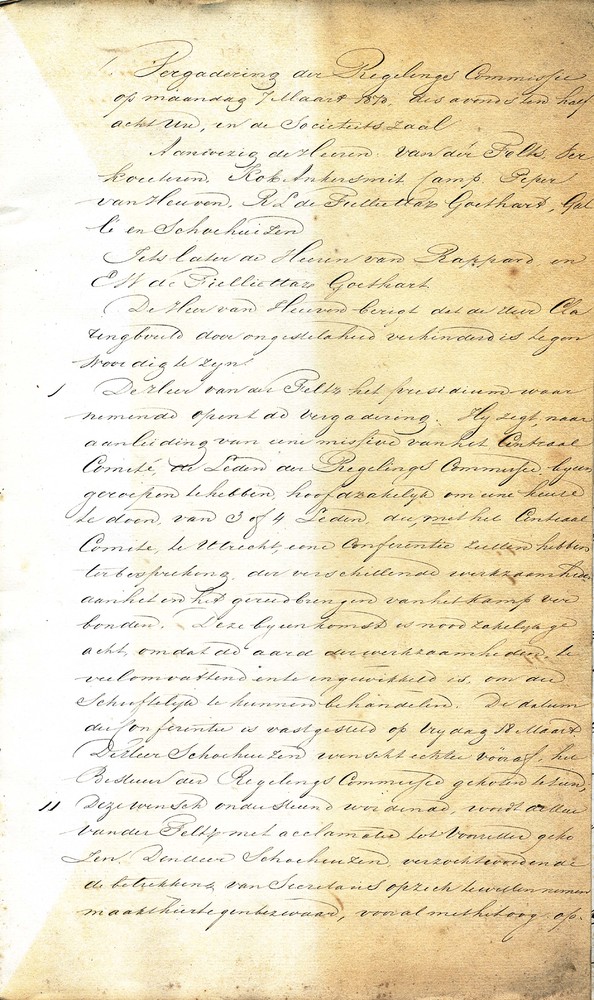 Vergadering der Regelings Commissie
op maandag 7 Maart 1870, des avonds ten half
acht Ure, in de Societeits Zaal
Aanwezig de Heeren van der Feltz, Ter
Kok Ankersmit Camp Peper
van Heuven, R L de Fielliettaz Goethart, Gal
lé en Schoehuizen
Iets later de Heeren van Rappard en
E W de Fielliettaz Goethart
De Heer van Heuven berigt dat de Heer Cla
tingbould door ongesteldheid verhinderd is tegen
woordig te zyn.
1 De Heer van der Feltz het presidium waar
nemende opent de vergadering. Hy zegt, naar
aanleiding van eene missive van het Centraal
Comité, de Leden der Regelings Commissie byeen
geroepen te hebben, hoofdzakelyk om eene keuze
te doen, van 3 of 4 Leden, die, met het Centraal
Comité, te Utrecht, eene Conferentie zullen hebben
ter bespreking der verschillende werkzaamheden
aan het in het gereedbrengen van het Kamp ver
bonden. Deze byeenkomst is noodzakelyk ge
acht, omdat de aard der werkzaamheden, te
veelomvattend en te ingewikkeld is, om die
Schriftelyk te kunnen behandelen. De datum
dier Conferentie is vastgesteld op Vrydag 18 Maart
De Heer Schoehuizen wenscht echter vooraf, het
Bestuur der Regelings Commissie gekozen te zien,
11 Deze wensch ondersteund wordende, wordt de Heer
van der Feltz met acclamatie tot Voorzitter geko
zen. Den Heer Schoehuizen, verzocht wordende
de betrekking van Secretaris op zich te willen nemen
maakt hiertegen bezwaar, vooral met het oog op